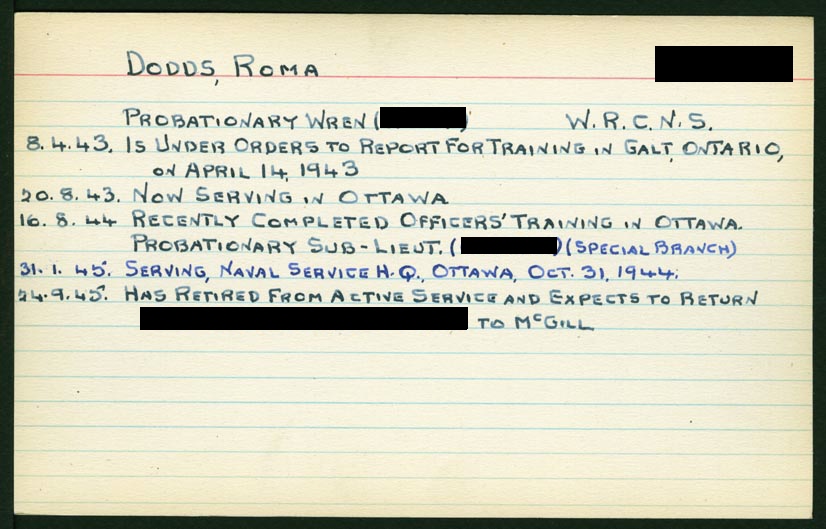 DODDS, ROMA
PROBATIONARY WREN ( ) W.R.C.N.S.
8.4.43. IS UNDER ORDERS TO REPORT FOR TRAINING IN GALT, ONTARIO,
ON APRIL 14, 1943
20.8.43. NOW SERVING IN OTTAWA
16.8.44 RECENTLY COMPLETED OFFICERS' TRAINING IN OTTAWA.
PROBATIONARY SUB-LIEUT. ( ) (SPECIAL BRANCH)
31.1.45. SERVING, NAVAL SERVICE H.Q., OTTAWA, OCT. 31, 1944.
24.9.45. HAS RETIRED FROM ACTIVE SERVICE AND EXPECTS TO RETURN
TO McGILL